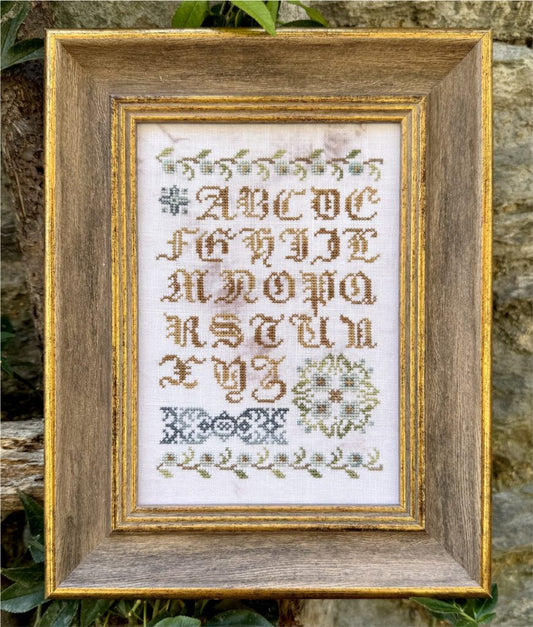 ABCDE
FGHIKL
MNOPQ
RSTU
XYZ